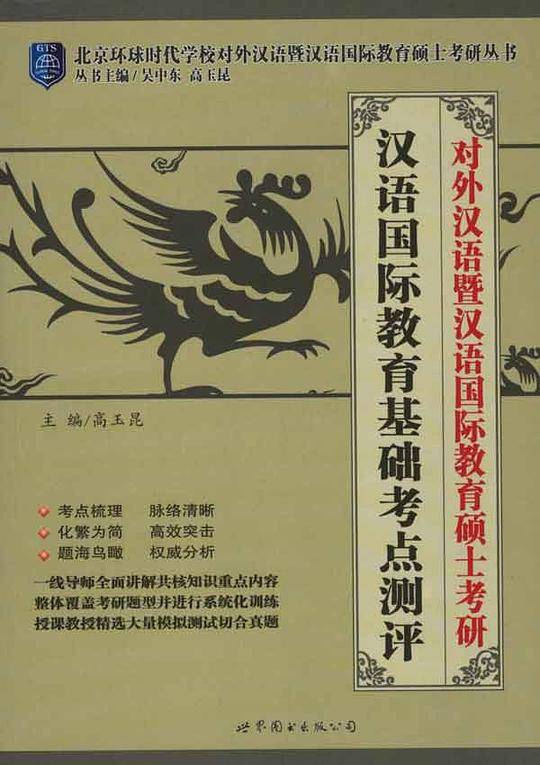 GTS
北京环球时代学校对外汉语暨汉语国际教育硕士考研丛书
丛书主编/吴中东 高玉昆
对外汉语暨汉语国际教育硕士考研
汉语国际教育基础考点测评
主 编/高玉昆
考点梳理 脉络清晰
化繁为简 高效突击
题海鸟瞰 权威分析
一线导师全面讲解共核知识重点内容
整体覆盖考研题型并进行系统化训练
授课教授精选大量模拟测试切合真题
世界图书出版公司